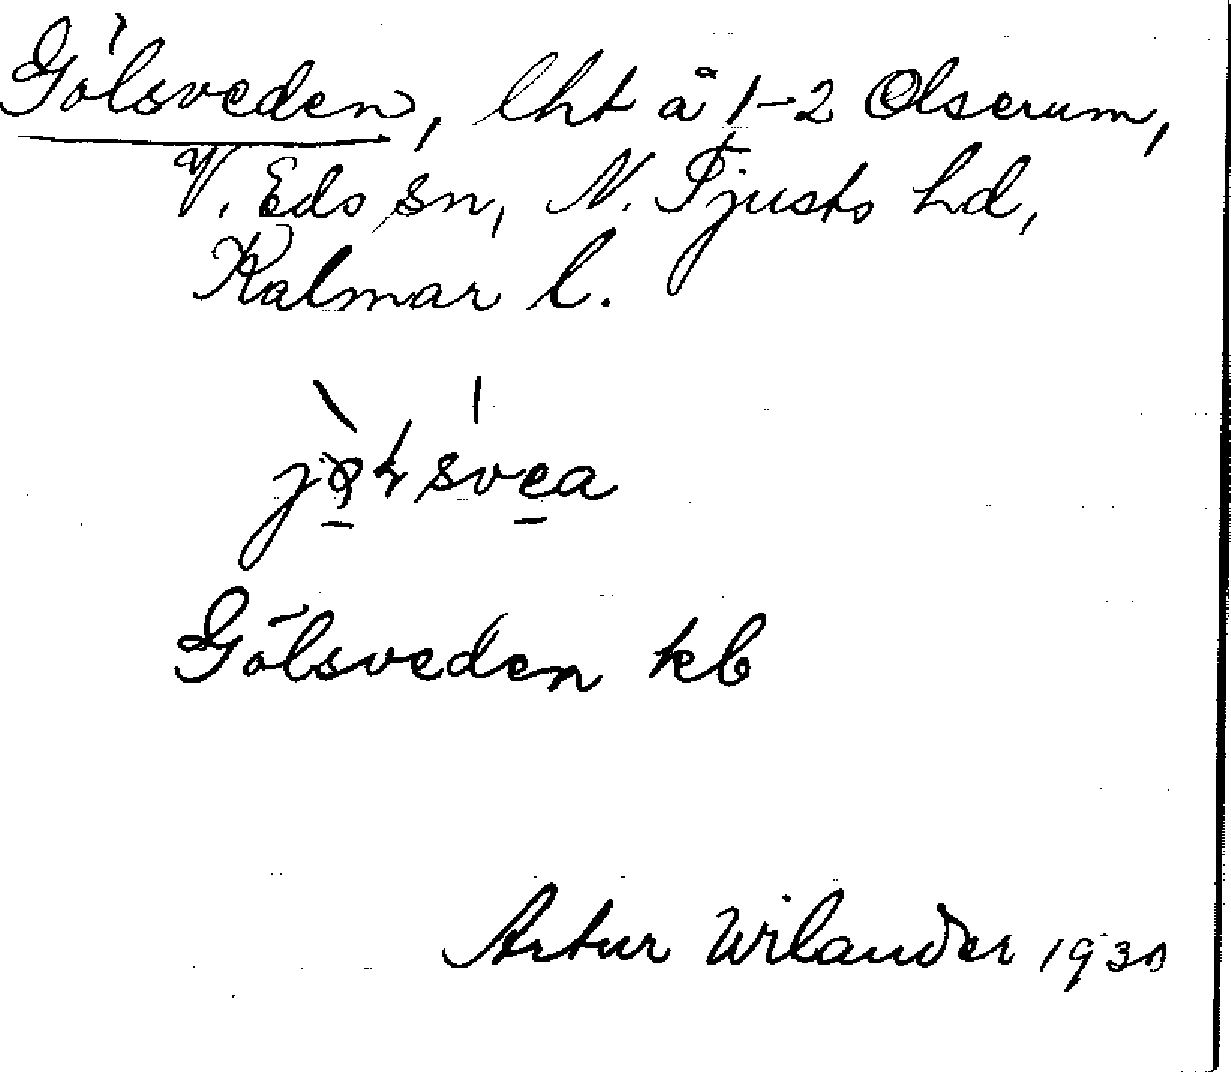 Gölsveden, lht å 1-2 Olserum,
V. Eds sn, N. Tjusts hd,
Kalmar l.
Gölsveden kb
Artur Wilander 1930